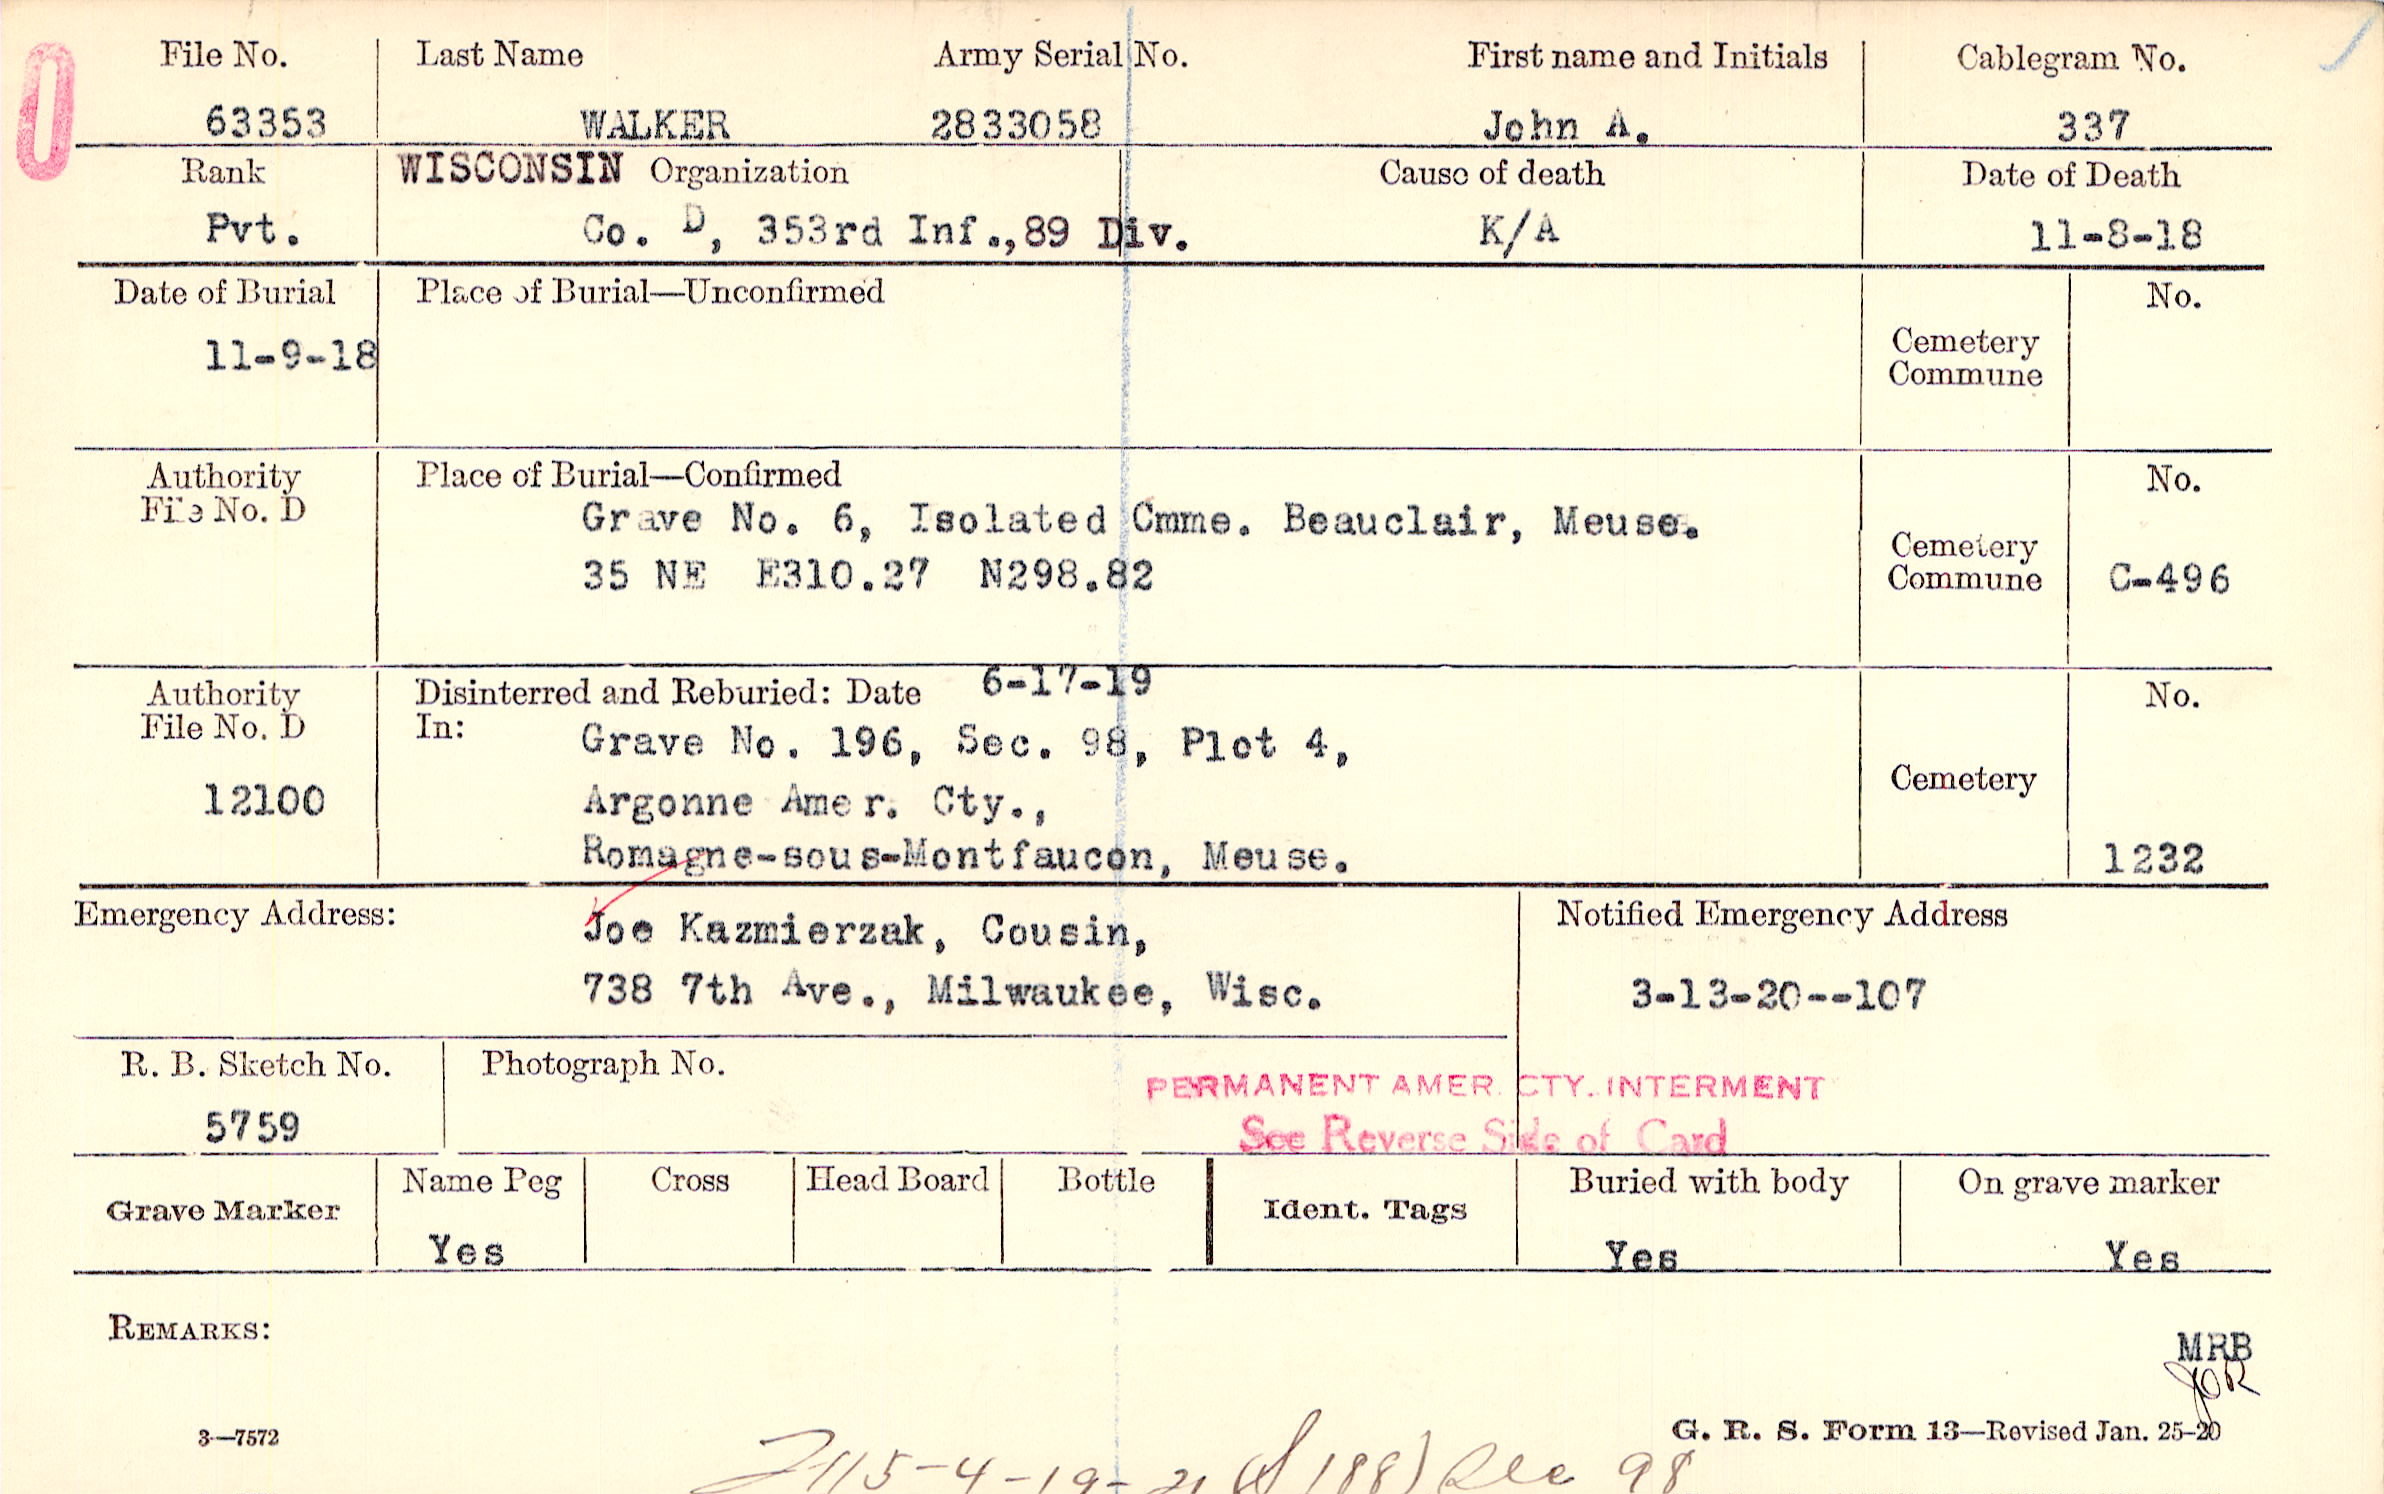 File No. Last Name Army Serial No. First name and Initials Cablegram No.
63353 WALKER 2833058 John A. 337
Rank WISCONSIN Organization Cause of death Date of Death
Pvt. Co. D, 353rd Inf.,89 Div. K/A 11-8-18
Date of Burial Place of Burial—Unconfirmed No.
11-9-18 Cemetery
Commune
Authority Place of Burial—Confirmed No.
File No. D Grave No. 6, Isolated Cmme. Beauclair, Meuse.
35 NE E310.27 N298.82 Cemetery
Commune C-496
Authority Disinterred and Reburied: Date 6-17-19 No.
File No. D In: Grave No. 196, Sec. 98, Plot 4,
12100 Argonne Amer. Cty., Cemetery
Romagne-sous-Montfaucon, Meuse. 1232
Emergency Address: Joe Kazmierzak, Cousin, Notified Emergency Address
738 7th Ave., Milwaukee, Wisc. 3-13-20--107
R. B. Sketch No. Photograph No.
PERMANENT AMER. CTY. INTERMENT
5759 See Reverse Side of Card
Grave Marker Name Peg Cross Head Board Bottle Ident. Tags Buried with body On grave marker
Yes Yes Yes
REMARKS:
MRB
JOR
3—7572 G. R. S. Form 13—Revised Jan. 25-20
98